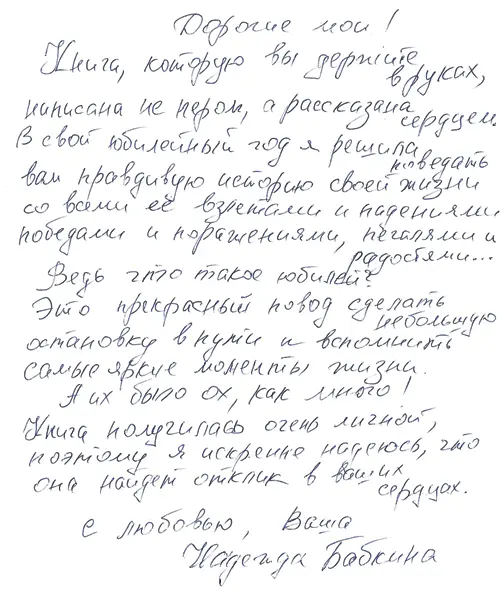 Дорогие мои!
Книга, которую вы держите
в руках,
написана не пером, а рассказана
сердцем.
В свой юбилейный год я решила
поведать
вам правдивую историю своей жизни
со всеми её взлетами и падениями
победами и поражениями, печалями и
радостями...
Ведь что такое юбилей?
Это прекрасный повод сделать
небольшую
остановку в пути и вспомнить
самые яркие моменты жизни.
А их было ох, как много!
Книга получилась очень личной,
поэтому я искренне надеюсь, что
она найдет отклик в ваших
сердцах.
С любовью, Ваша
Надежда Бабкина